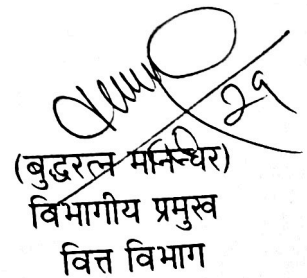 २१
(बुद्धरत्न मानन्धर)
विभागीय प्रमुख
वित्त विभाग